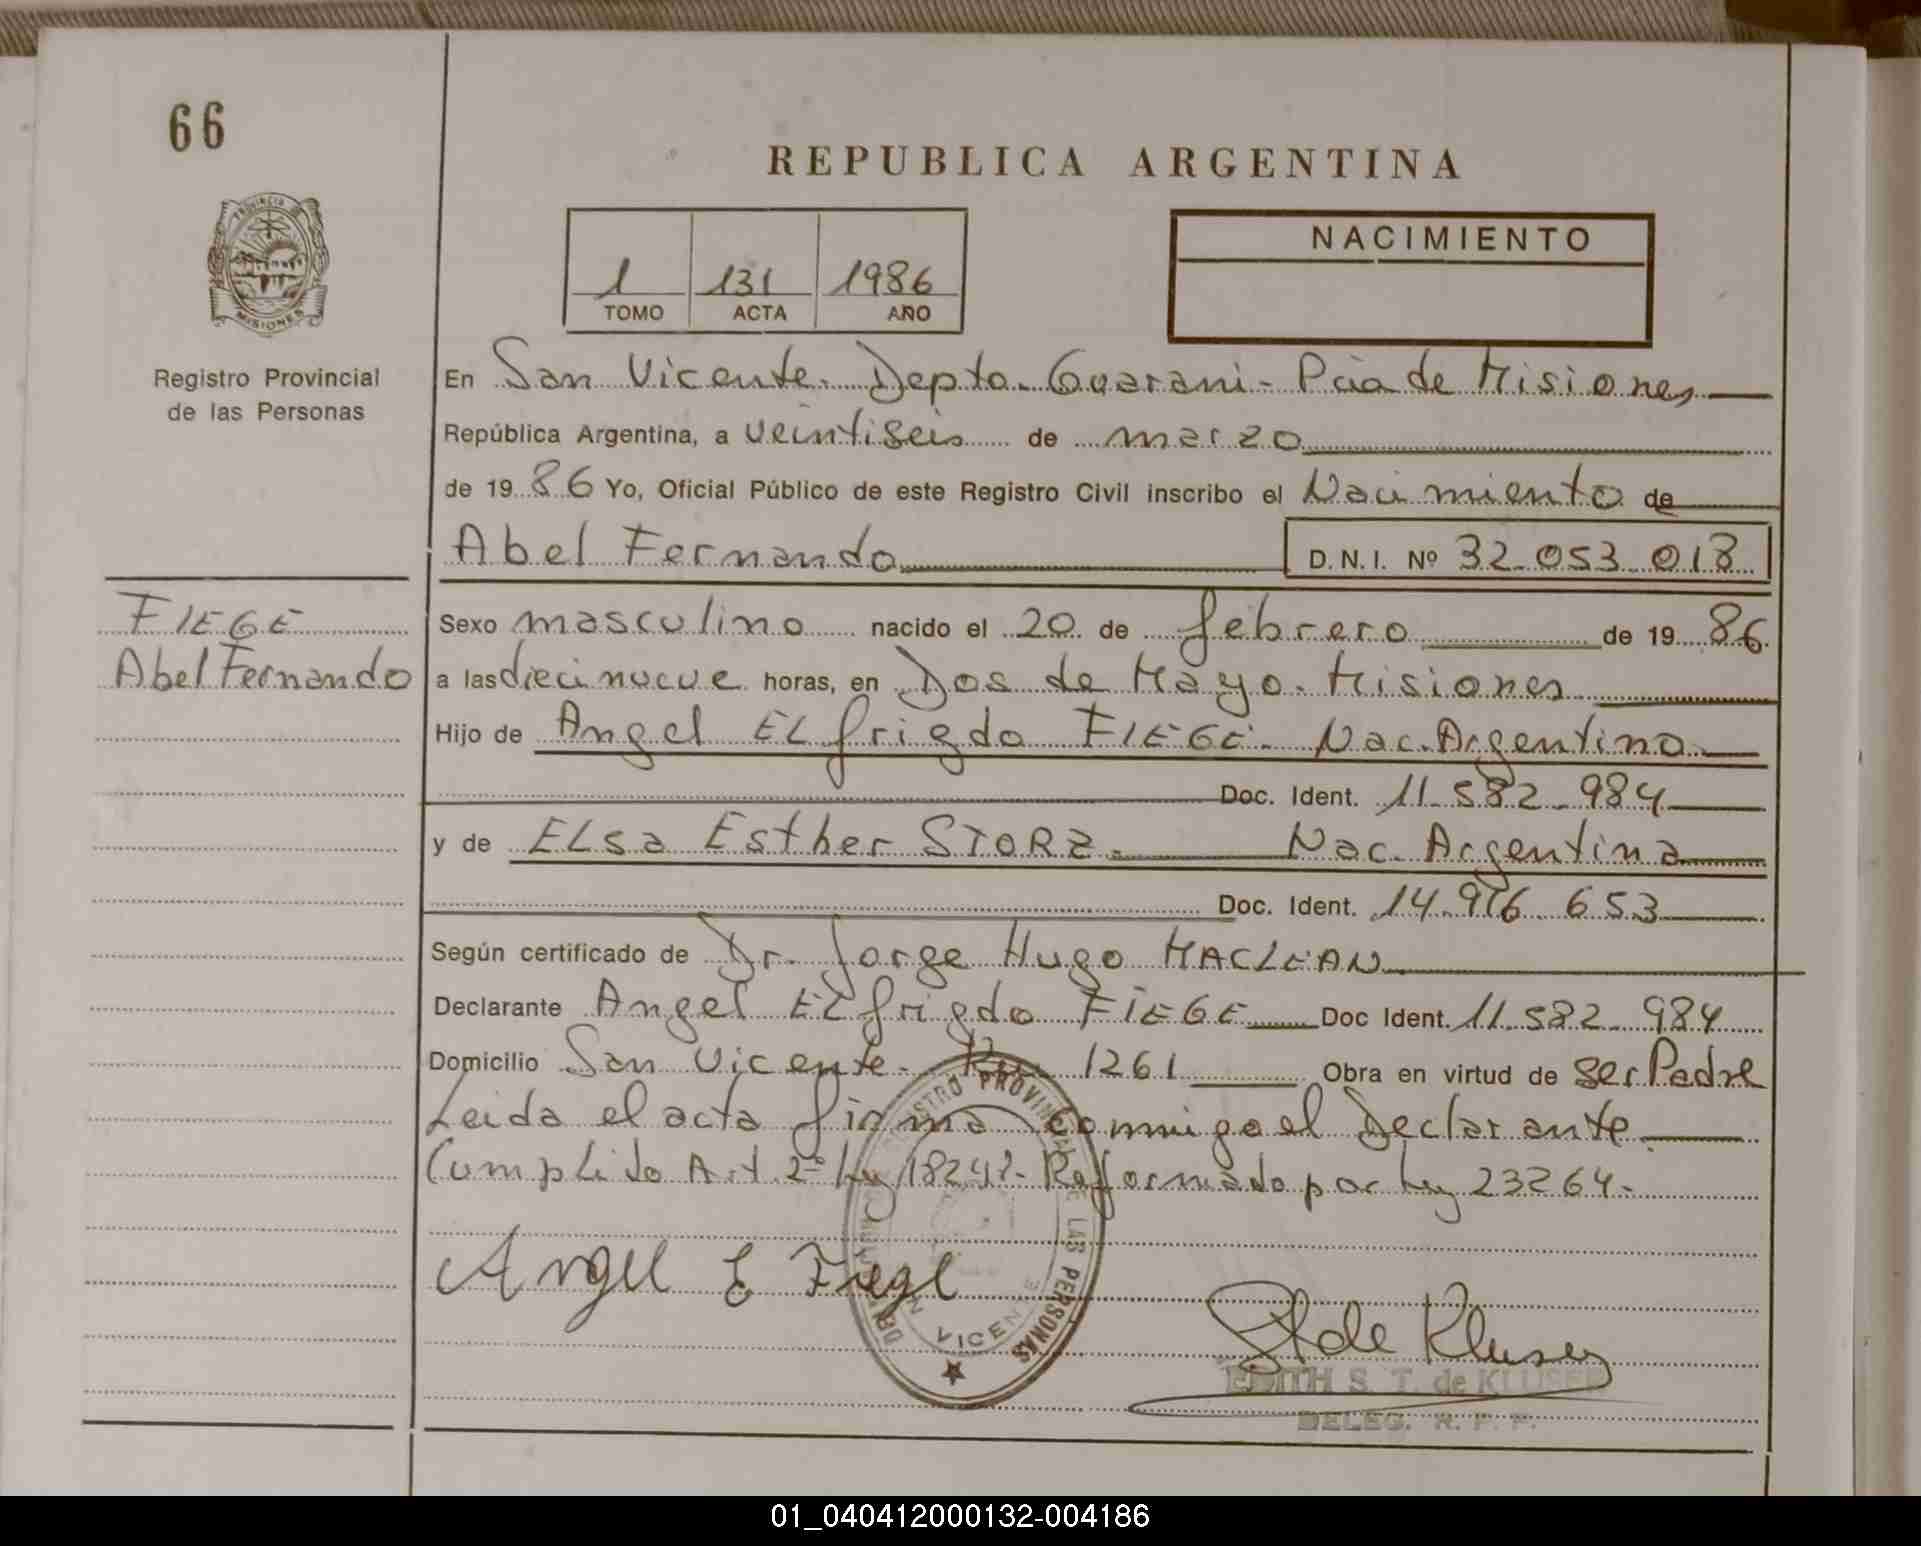 66
REPUBLICA ARGENTINA
PROVINCIA DE
MISIONES
Registro Provincial
de las Personas
1 131 1986
TOMO ACTA AÑO
NACIMIENTO
En San Vicente. Depto. Guarani - Pcia de Misiones
República Argentina, a veintiseis de marzo
de 1986 Yo, Oficial Público de este Registro Civil inscribo el Nacimiento de
Abel Fernando D.N.I. Nº 32.053.018
FIEGE
Abel Fernando
Sexo masculino nacido el 20 de febrero de 1986.
a las diecinueve horas, en Dos de Mayo. Misiones
Hijo de Angel ELfrigdo FIEGE. Nac. Argentino
Doc. Ident. 11.582.984
y de ELsa Esther STORZ. Nac. Argentina
Doc. Ident. 14.976.653
Según certificado de Dr. Jorge Hugo MACLEAN
Declarante Angel ELfrigdo FIEGE Doc Ident. 11.582.984
Domicilio San Vicente. Km 1261 Obra en virtud de ser Padre
Leida el acta firma conmigo el Declarante
Cumplido Art. 2º Ley 18248 - Reformado por Ley 23264.
REGISTRO PROVINCIAL DE LAS PERSONAS
VICENTE
Angel E Fiege
E S T de Kluser
EDITH S. T. de KLUSER
DELEG. R. P. P.
01_040412000132-004186